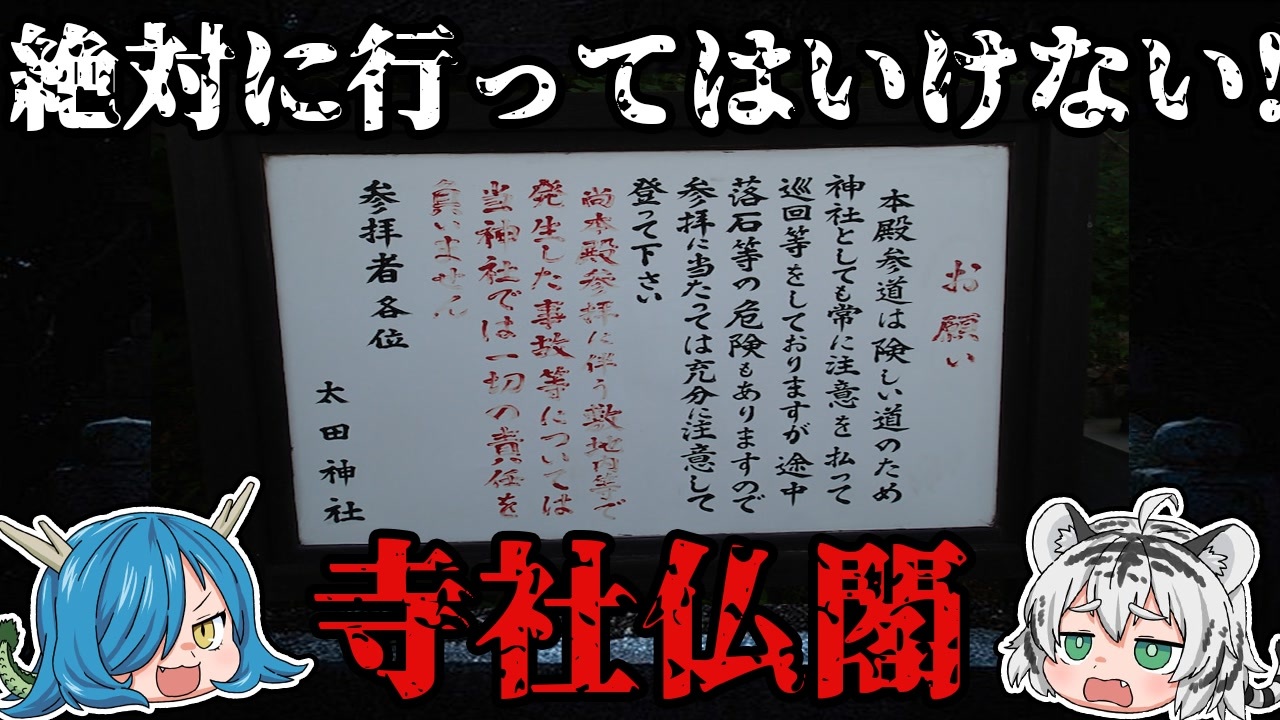 絶対に行ってはいけない!
お願い
本殿参道は険しい道のため
神社としても常に注意を払って
巡回等をしておりますが途中
落石等の危険もありますので
参拝に当たっては充分に注意して
登って下さい
尚本殿参拝に伴う敷地内等で
発生した事故等については
当神社では一切の責任を
負いません
参拝者各位
太田神社
寺社仏閣